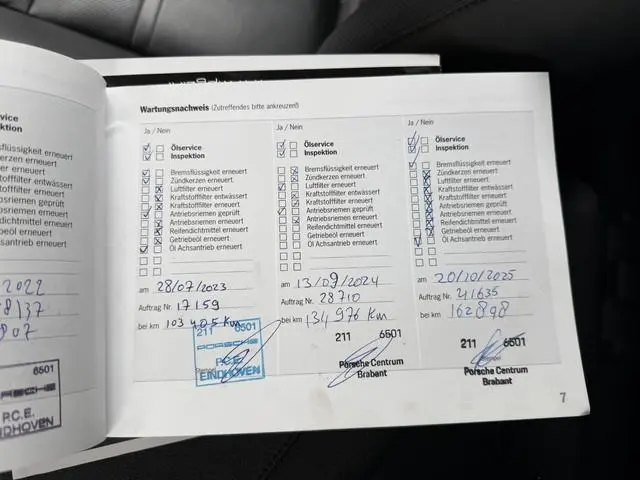 Wartungsnachweis (Zutreffendes bitte ankreuzen!)
rvice
ktion
flüssigkeit erneuert
erzen erneuert
er erneuert
offfilter entwässert
offfilter erneuert
sriemen geprüft
sriemen erneuert
dichtmittel erneuert
eöl erneuert
santrieb erneuert
2022
8137
807
6501
P.C.E.
NDHOVEN
Ja / Nein
Ölservice
Inspektion
Bremsflüssigkeit erneuert
Zündkerzen erneuert
Luftfilter erneuert
Kraftstofffilter entwässert
Kraftstofffilter erneuert
Antriebsriemen geprüft
Antriebsriemen erneuert
Reifendichtmittel erneuert
Getriebeöl erneuert
Öl Achsantrieb erneuert
am 28/07/2023
Auftrag Nr. 17159
bei km 103 405 Km
211 6501
PORSCHE
Stempel
P.C.E.
EINDHOVEN
Ja / Nein
Ölservice
Inspektion
Bremsflüssigkeit erneuert
Zündkerzen erneuert
Luftfilter erneuert
Kraftstofffilter entwässert
Kraftstofffilter erneuert
Antriebsriemen geprüft
Antriebsriemen erneuert
Reifendichtmittel erneuert
Getriebeöl erneuert
Öl Achsantrieb erneuert
am 13/09/2024
Auftrag Nr. 28710
bei km 134 976 Km
211 6501
Porsche Centrum
Brabant
Ja / Nein
Ölservice
Inspektion
Bremsflüssigkeit erneuert
Zündkerzen erneuert
Luftfilter erneuert
Kraftstofffilter entwässert
Kraftstofffilter erneuert
Antriebsriemen geprüft
Antriebsriemen erneuert
Reifendichtmittel erneuert
Getriebeöl erneuert
Öl Achsantrieb erneuert
am 20/10/2025
Auftrag Nr. 41635
bei km 162898
211 6501
Stempel
Porsche Centrum
Brabant
7